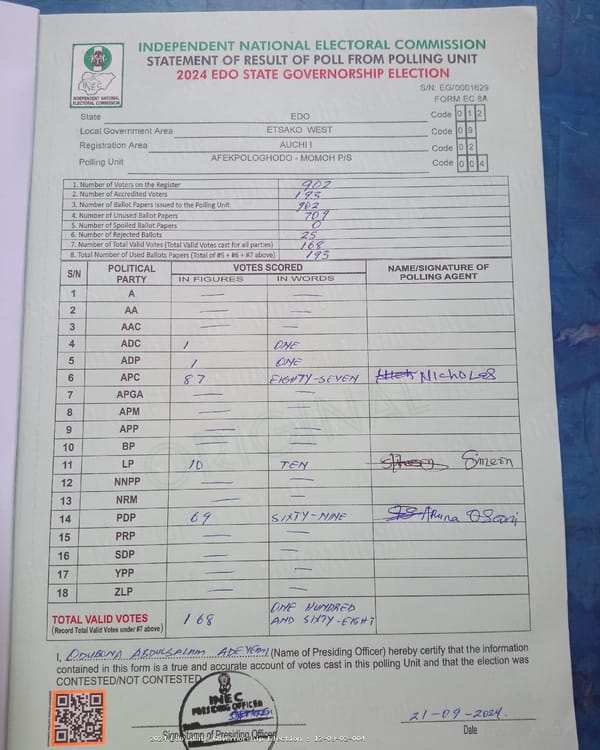 INDEPENDENT NATIONAL ELECTORAL COMMISSION
STATEMENT OF RESULT OF POLL FROM POLLING UNIT
2024 EDO STATE GOVERNORSHIP ELECTION
INEC
INDEPENDENT NATIONAL
ELECTORAL COMMISSION
S/N: EG/0001629
FORM EC 8A
State EDO Code 0 1 2
Local Government Area ETSAKO WEST Code 0 9
Registration Area AUCHI I Code 0 2
Polling Unit AFEKPOLOGHODO - MOMOH P/S Code 0 0 4
1. Number of Voters on the Register 902
2. Number of Accredited Voters 193
3. Number of Ballot Papers Issued to the Polling Unit 902
4. Number of Unused Ballot Papers 709
5. Number of Spoiled Ballot Papers 0
6. Number of Rejected Ballots 25
7. Number of Total Valid Votes (Total Valid Votes cast for all parties) 168
8. Total Number of Used Ballots Papers (Total of #5 + #6 + #7 above) 193
S/N POLITICAL PARTY VOTES SCORED NAME/SIGNATURE OF POLLING AGENT
IN FIGURES IN WORDS
1 A — —
2 AA — —
3 AAC — —
4 ADC 1 ONE
5 ADP 1 ONE
6 APC 87 EIGHTY-SEVEN NICHOLES
7 APGA — —
8 APM — —
9 APP — —
10 BP — —
11 LP 10 TEN Simeon
12 NNPP — —
13 NRM — —
14 PDP 69 SIXTY-NINE Aruna Osani
15 PRP — —
16 SDP — —
17 YPP — —
18 ZLP — —
TOTAL VALID VOTES 168 ONE HUNDRED AND SIXTY-EIGHT
(Record Total Valid Votes under #7 above)
ORIGINAL
I, ODUBONA ABDULSALAM ADEYEMI (Name of Presiding Officer) hereby certify that the information
contained in this form is a true and accurate account of votes cast in this polling Unit and that the election was
CONTESTED/NOT CONTESTED
INEC
PRESIDING OFFICER
21-09-2024.
Sign/Stamp of Presiding Officer Date